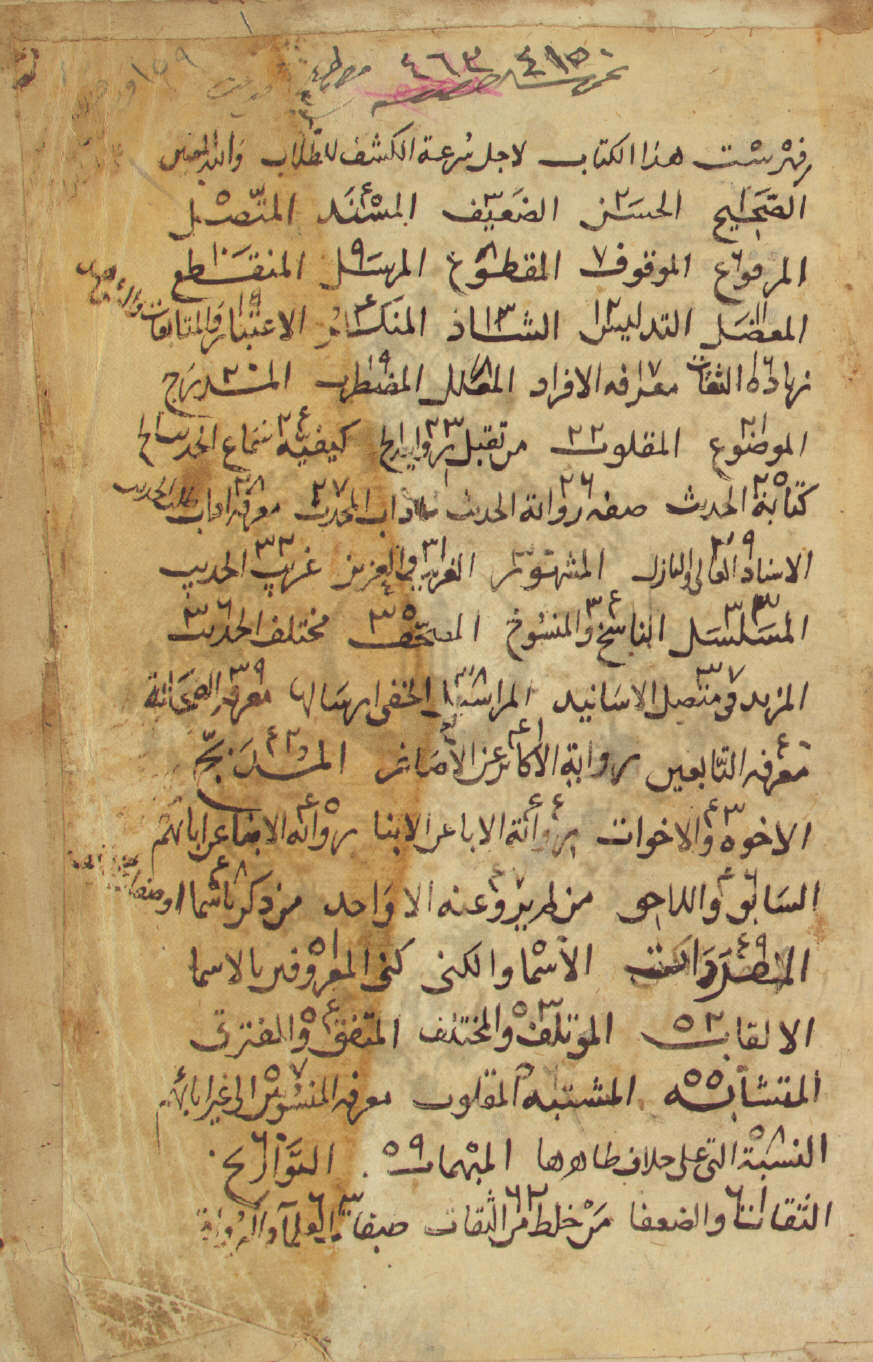 ٤١٥٠ ٤٦٣
فهرست هذا الكتاب لاجل سرعة الكشف للطلاب والله المعين
الصحيح ١ الحسن ٢ الضعيف ٣ المسند ٤ المتصل ٥
المرفوع ٦ الموقوف ٧ المقطوع ٨ المرسل ٩ المنقطع ١٠
المعضل ١١ التدليس ١٢ الشاذ ١٣ المنكر ١٤ الاعتبار والمتابعات والشواهد ١٥
زيادة الثقات ١٦ معرفه الافراد ١٧ المعلل ١٨ المضطرب ١٩ المدرج ٢٠
الموضوع ٢١ المقلوب ٢٢ من تقبل روايته ٢٣ كيفية سماع الحديث ٢٤
كتابة الحديث ٢٥ صفه رواية الحديث ٢٦ اداب المحدث ٢٧ معرفه اداب طالب الحديث ٢٨
الاسناد العالى والنازل ٢٩ المشهور ٣٠ الغريب والعزيز ٣١ غريب الحديث ٣٢
المسلسل ٣٣ الناسخ والمنسوخ ٣٤ المصحف ٣٥ مختلف الحديث ٣٦
المزيد فى متصل الاسانيد ٣٧ المراسيل الخفى ارسالها ٣٨ معرفه الصحابة ٣٩
معرفه التابعين ٤٠ رواية الاكابر عن الاصاغر ٤١ المدبج ٤٢
الاخوه والاخوات ٤٣ رواية الابا عن الابنا ٤٤ رواية الابنا عن ابائهم ٤٥
السابق واللاحق ٤٦ من لم يرو عنه الا واحد ٤٧ من ذكر باسما او صفات ٤٨
المفردات ٤٩ الاسما والكنى كنى المعروفين بالاسما ٥١
الالقاب ٥٢ الموتلف والمختلف ٥٣ المتفق والمفترق ٥٤
المتشابه ٥٥ المشتبه المقلوب معرفه المنسوبين الى غير ابائهم ٥٧
النسبة التى على خلاف ظاهرها ٥٨ المبهمات ٥٩ التواريخ ٦٠
الثقات والضعفا ٦١ من خلط من الثقات ٦٢ طبقات العلما والرواة ٦٣